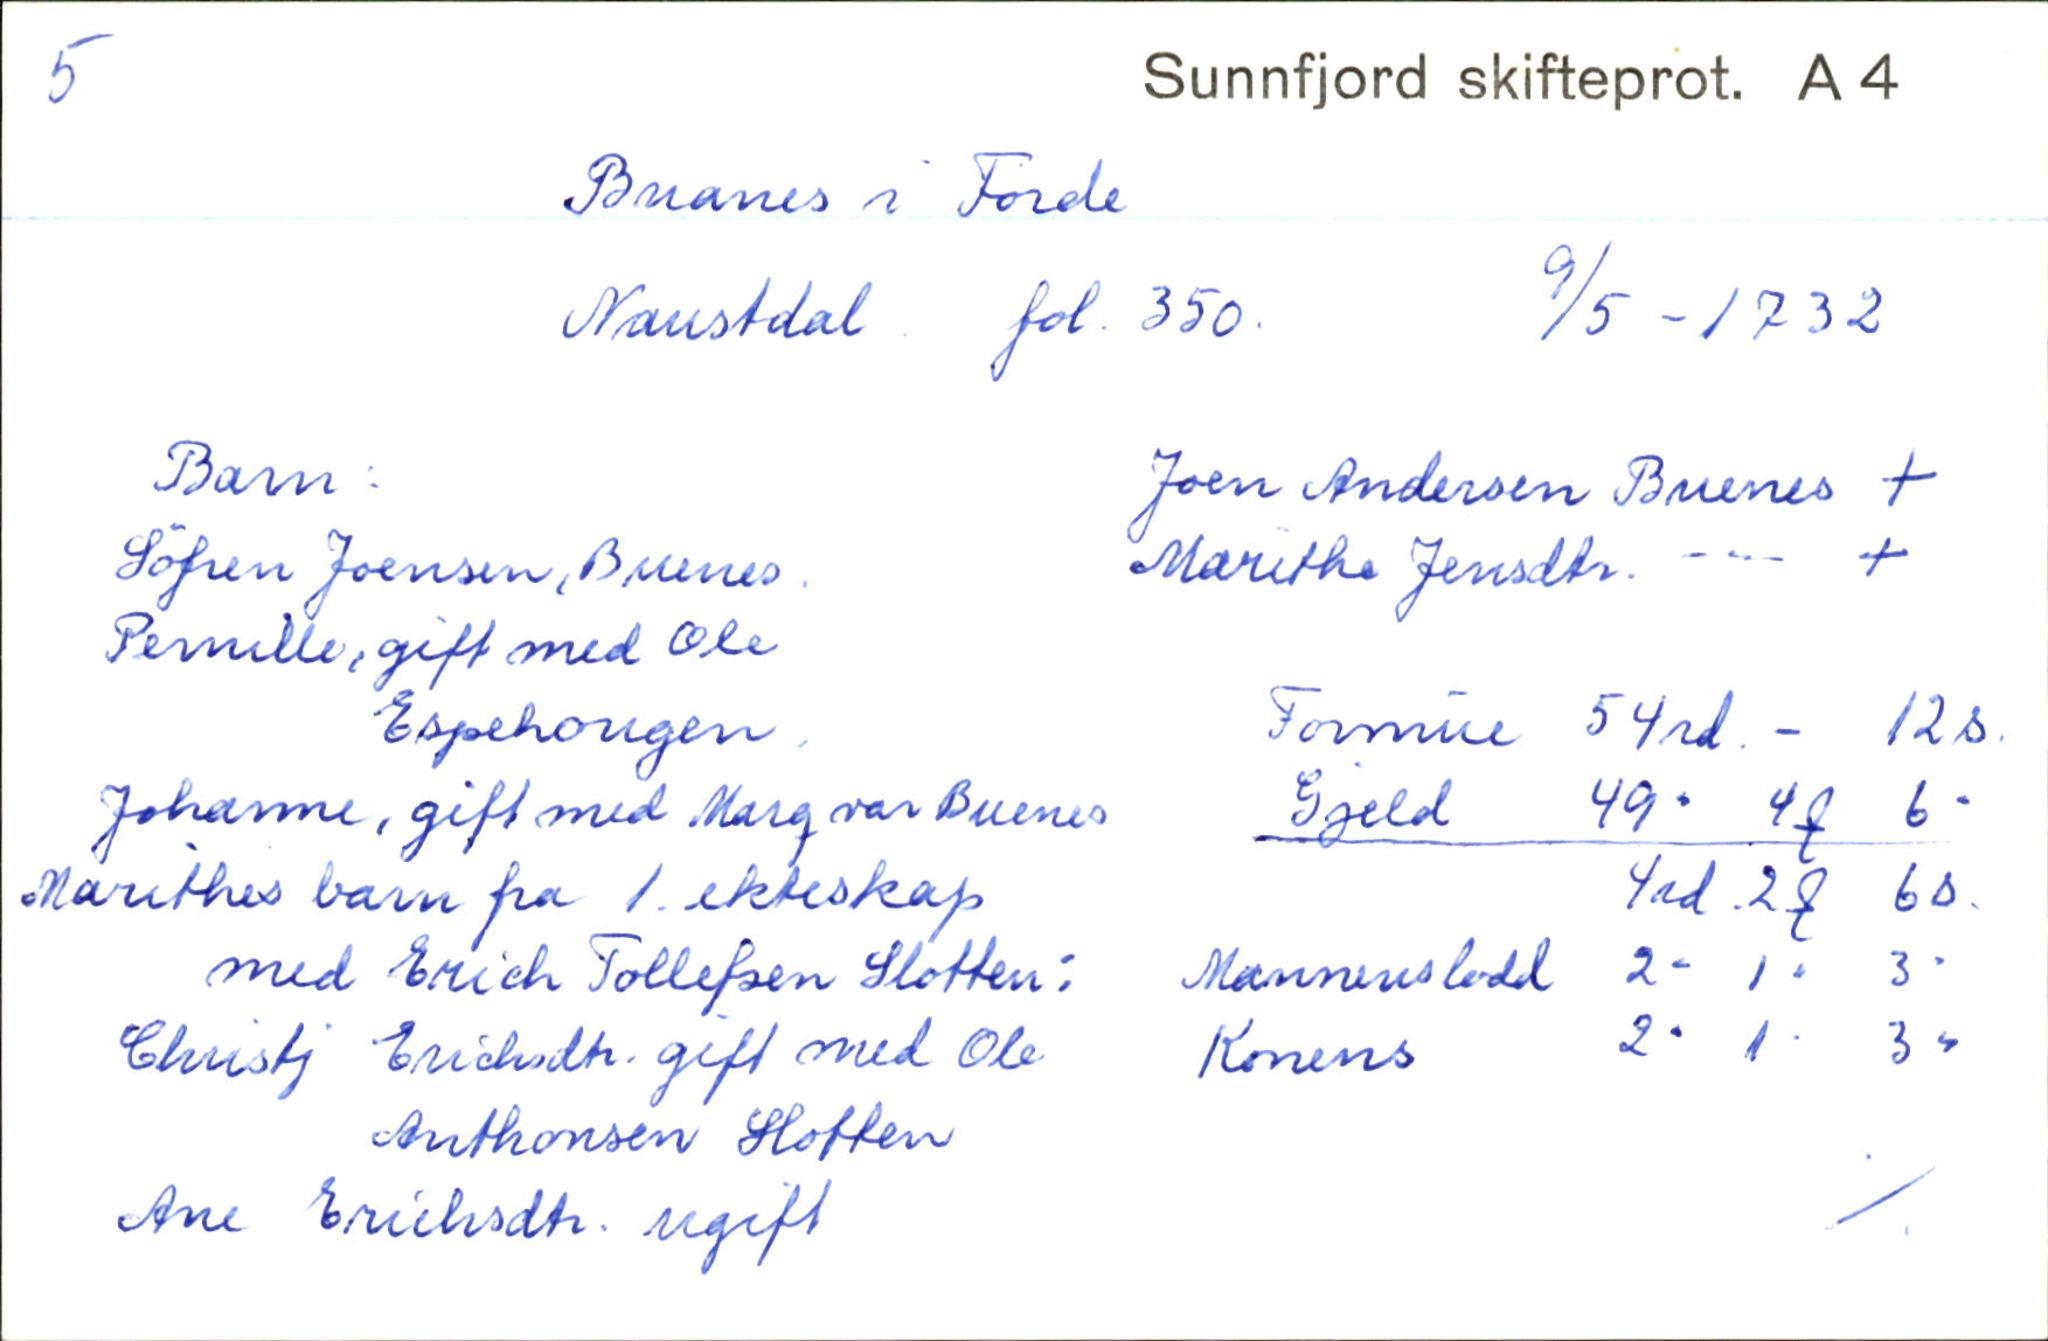 5
Sunnfjord skifteprot. A 4
Buanes i Förde
Naustdal. fol. 350. 9/5 - 1732
Barn:
Söfren Joensen, Buenes.
Pernille, gift med Ole
Espehougen.
Johanne, gift med Marq var Buenes
Marithes barn fra 1. ekteskap
med Erich Tollefsen Slotten:
Christj Erichsdtr. gift med Ole
Anthonsen Slotten
Ane Erichsdtr. ugift
Joen Andersen Buenes +
Marithe Jensdtr. - - - +
Formue 54 rd. - 12 s.
Gjeld 49 " 4 ƒ 6 "
4 rd. 2 ƒ 6 s.
Mannens lodd 2 " 1 " 3 "
Konens 2 " 1 " 3 "